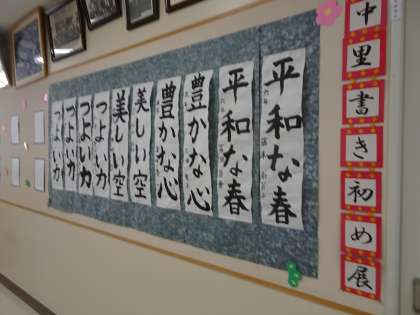 中里書き初め展
平和な春
平和な春
豊かな心
豊かな心
美しい空
美しい空
つよい力
つよい力
つよい力
つよい力